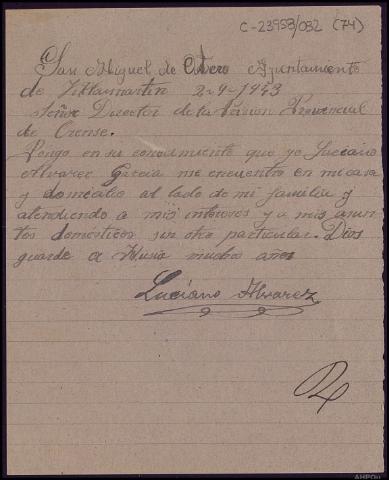 C-23953/032 (74)
San Miguel de Otero Ayuntamiento
de Villamartin 2-9-1943
Señor Director de la Prision Provincial
de Orense.
Pongo en su conocimiento que yo Luciano
Alvarez Garcia me encuentro en mi casa
y domicilio al lado de mi familia y
atendiendo a mis intereses y a mis asun
tos domesticos sin otro particular. Dios
guarde a Husia muchos años
Luciano Alvarez
AHPOu